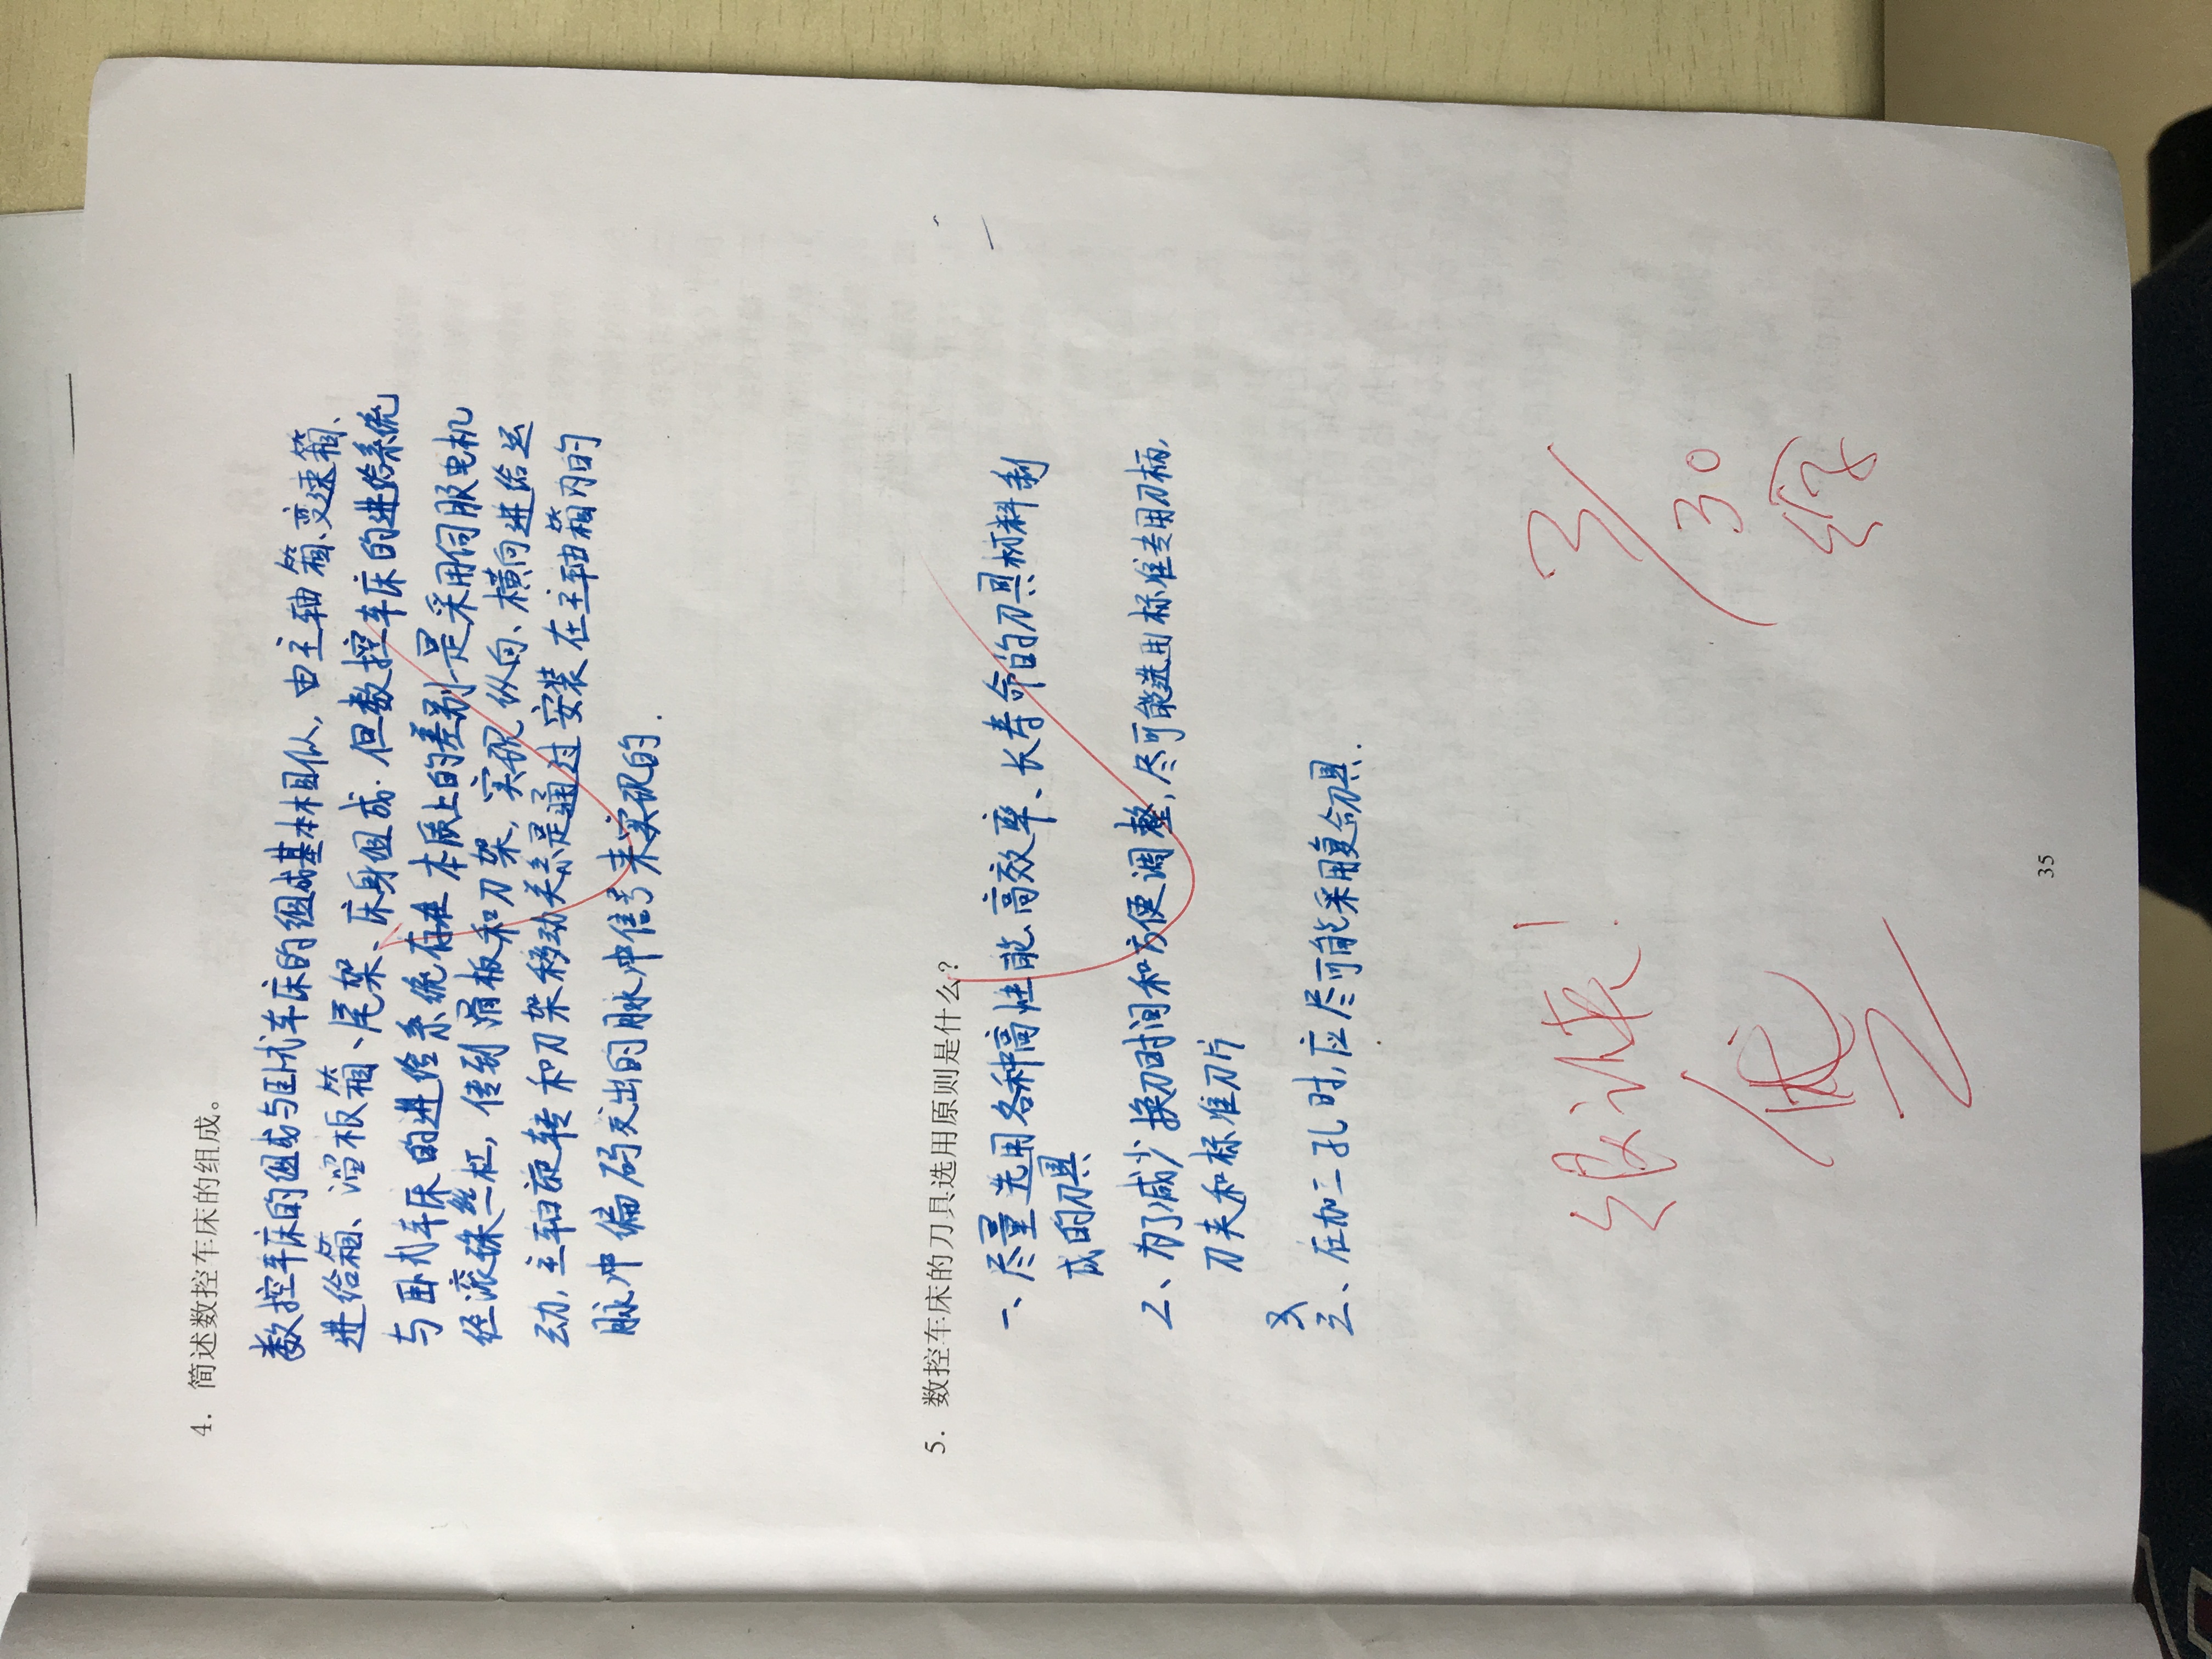 4. 简述数控车床的组成。
数控车床的组成与卧式车床的组成基本相似，由主轴箱、变速箱、
进给箱、溜板箱、尾架、床身组成. 但数控车床的进给系统
与卧式车床的进给系统存在本质上的差别是采用伺服电机
经滚珠丝杠，传到滑板和刀架，实现纵向、横向进给运
动，主轴旋转和刀架移动关系是通过安装在主轴箱内的
脉冲编码发出的脉冲信号来实现的.
5. 数控车床的刀具选用原则是什么？
一、尽量选用各种高性能、高效率、长寿命的刀具材料制
成的刀具
2、为了减少换刀时间和方便调整，尽可能选用标准专用刀柄，
刀夹和标准刀片
三、在加工孔时，应尽可能采用复合刀具.
很认真！
优
3/30
35